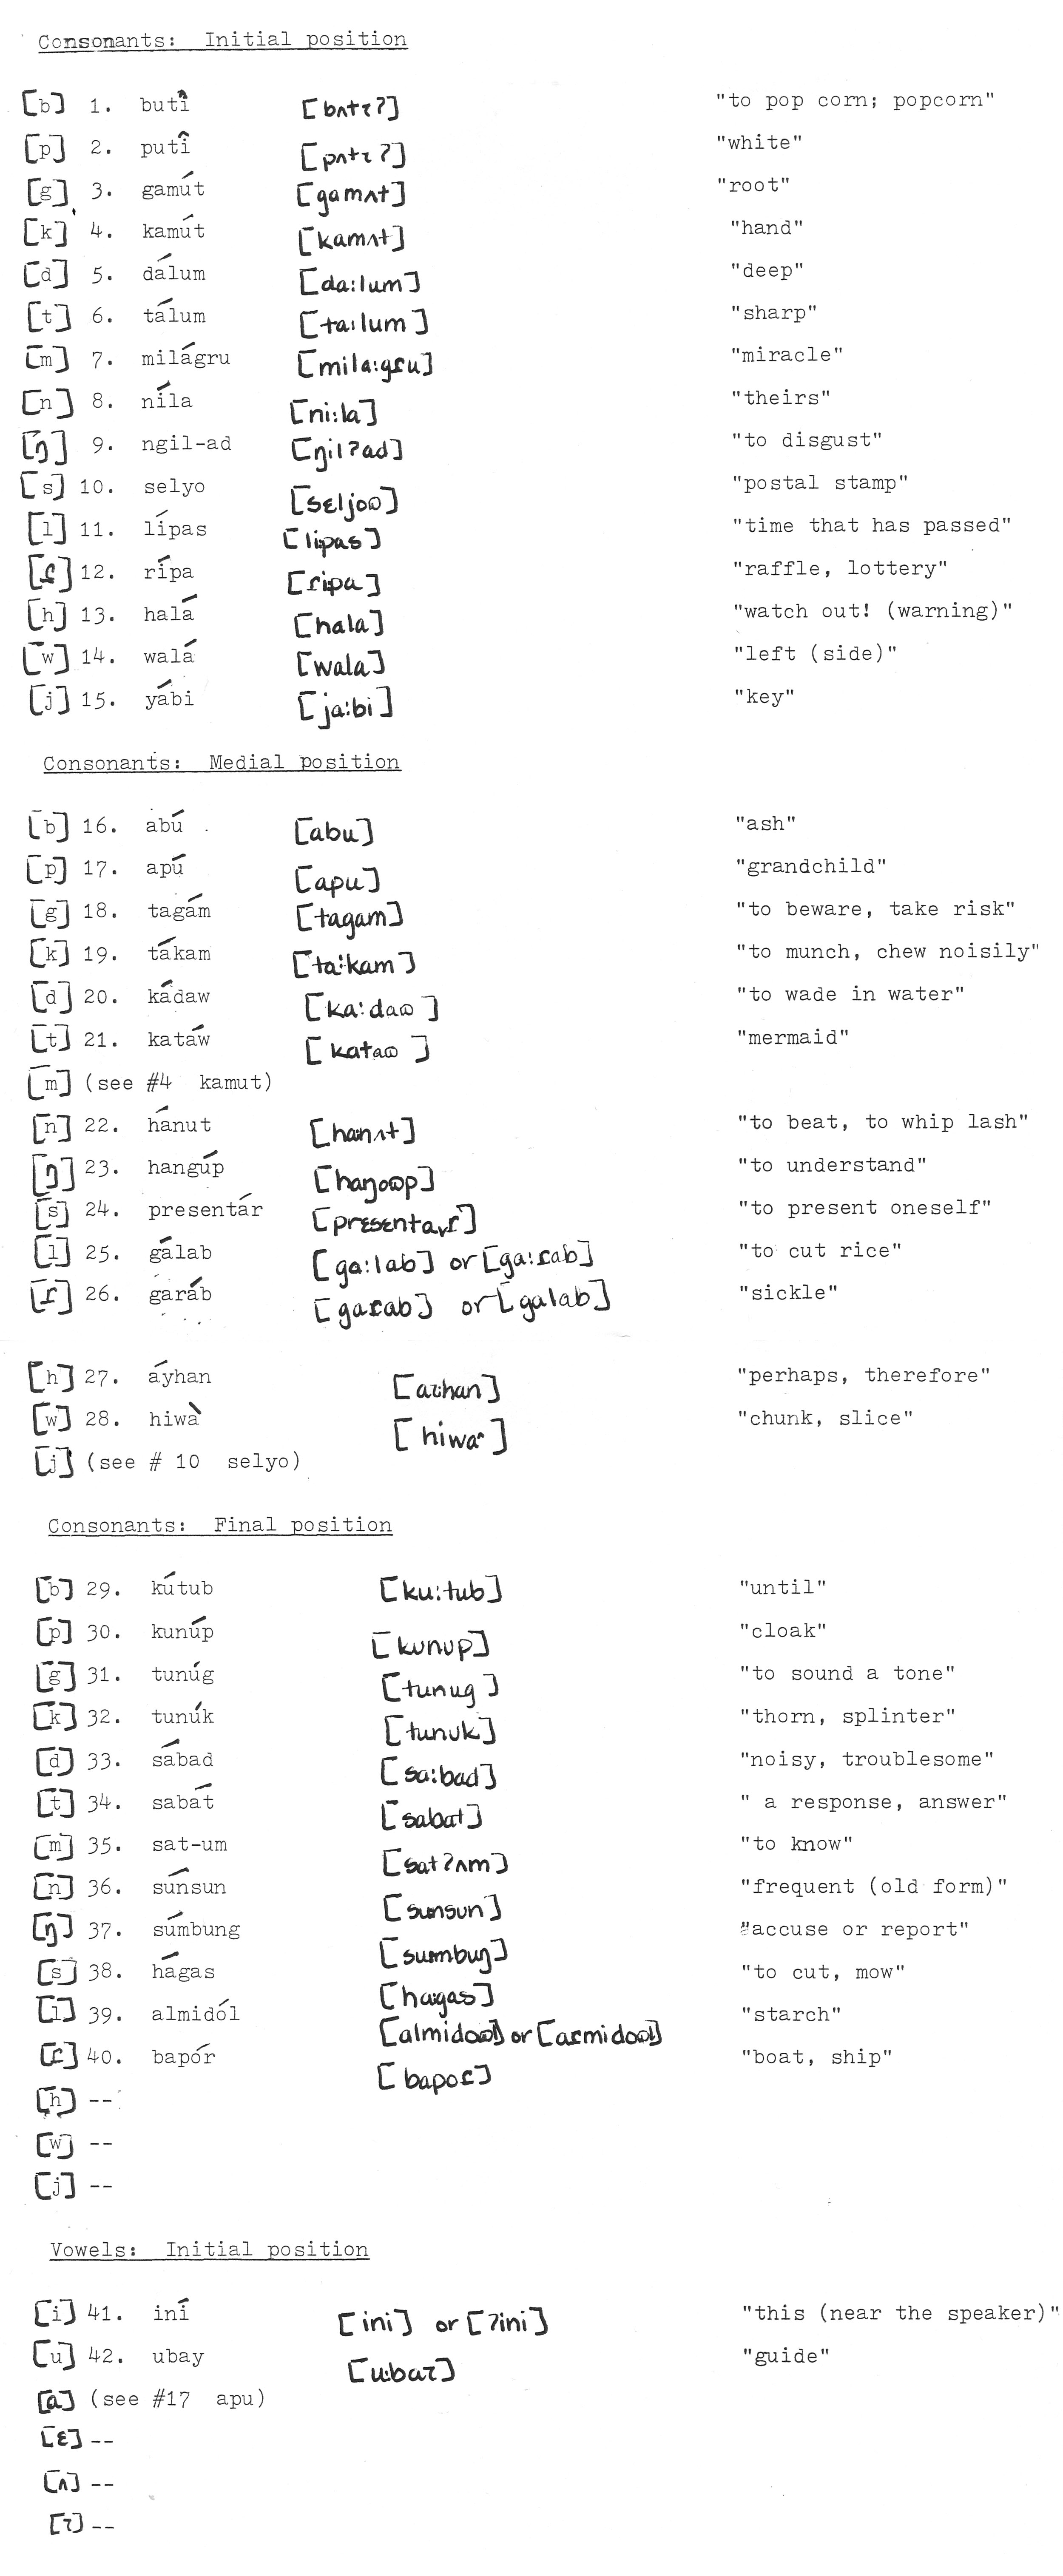 Consonants: Initial position
[b] 1. butî [bʌtɪʔ] "to pop corn; popcorn"
[p] 2. putî [pʌtɪʔ] "white"
[g] 3. gamút [gamʌt] "root"
[k] 4. kamút [kamʌt] "hand"
[d] 5. dálum [da:lum] "deep"
[t] 6. tálum [ta:lum] "sharp"
[m] 7. milágru [mila:gɾu] "miracle"
[n] 8. níla [ni:la] "theirs"
[ŋ] 9. ngil-ad [ŋilʔad] "to disgust"
[s] 10. selyo [sɛljoɷ] "postal stamp"
[l] 11. lípas [li:pas] "time that has passed"
[ɾ] 12. rípa [ɾi:pa] "raffle, lottery"
[h] 13. halá [hala] "watch out! (warning)"
[w] 14. walá [wala] "left (side)"
[j] 15. yábi [ja:bi] "key"
Consonants: Medial position
[b] 16. abú [abu] "ash"
[p] 17. apú [apu] "grandchild"
[g] 18. tagám [tagam] "to beware, take risk"
[k] 19. tákam [ta:kam] "to munch, chew noisily"
[d] 20. kádaw [ka:daɷ] "to wade in water"
[t] 21. katáw [kataɷ] "mermaid"
[m] (see #4 kamut)
[n] 22. hánut [hanʌt] "to beat, to whip lash"
[ŋ] 23. hangúp [haŋoɷp] "to understand"
[s] 24. presentár "to present oneself"
[l] 25. gálab [ga:lab] or [ga:ɾab] "to cut rice"
[ɾ] 26. garáb [gaɾab] or [galab] "sickle"
[h] 27. áyhan [aɪhan] "perhaps, therefore"
[w] 28. hiwà "chunk, slice"
[j] (see # 10 selyo)
Consonants: Final position
[b] 29. kútub [ku:tub] "until"
[p] 30. kunúp [kunup] "cloak"
[g] 31. tunúg [tunug] "to sound a tone"
[k] 32. tunúk [tunuk] "thorn, splinter"
[d] 33. sábad [sa:bad] "noisy, troublesome"
[t] 34. sabát [sabat] " a response, answer"
[m] 35. sat-um [satʔʌm] "to know"
[n] 36. súnsun [sunsun] "frequent (old form)"
[ŋ] 37. súmbung [sumbuŋ] "accuse or report"
[s] 38. hágas [ha:gas] "to cut, mow"
[l] 39. almidól [almidoɷl] or [aɾmidoɷl] "starch"
[ɾ] 40. bapór [bapoɾ] "boat, ship"
[h] --
[w] --
[j] --
Vowels: Initial position
[i] 41. iní [ini] or [ʔini] "this (near the speaker)"
[u] 42. ubay [u:baɪ] "guide"
[a] (see #17 apu)
[ɛ] --
[ʌ] --
[ɪ] --